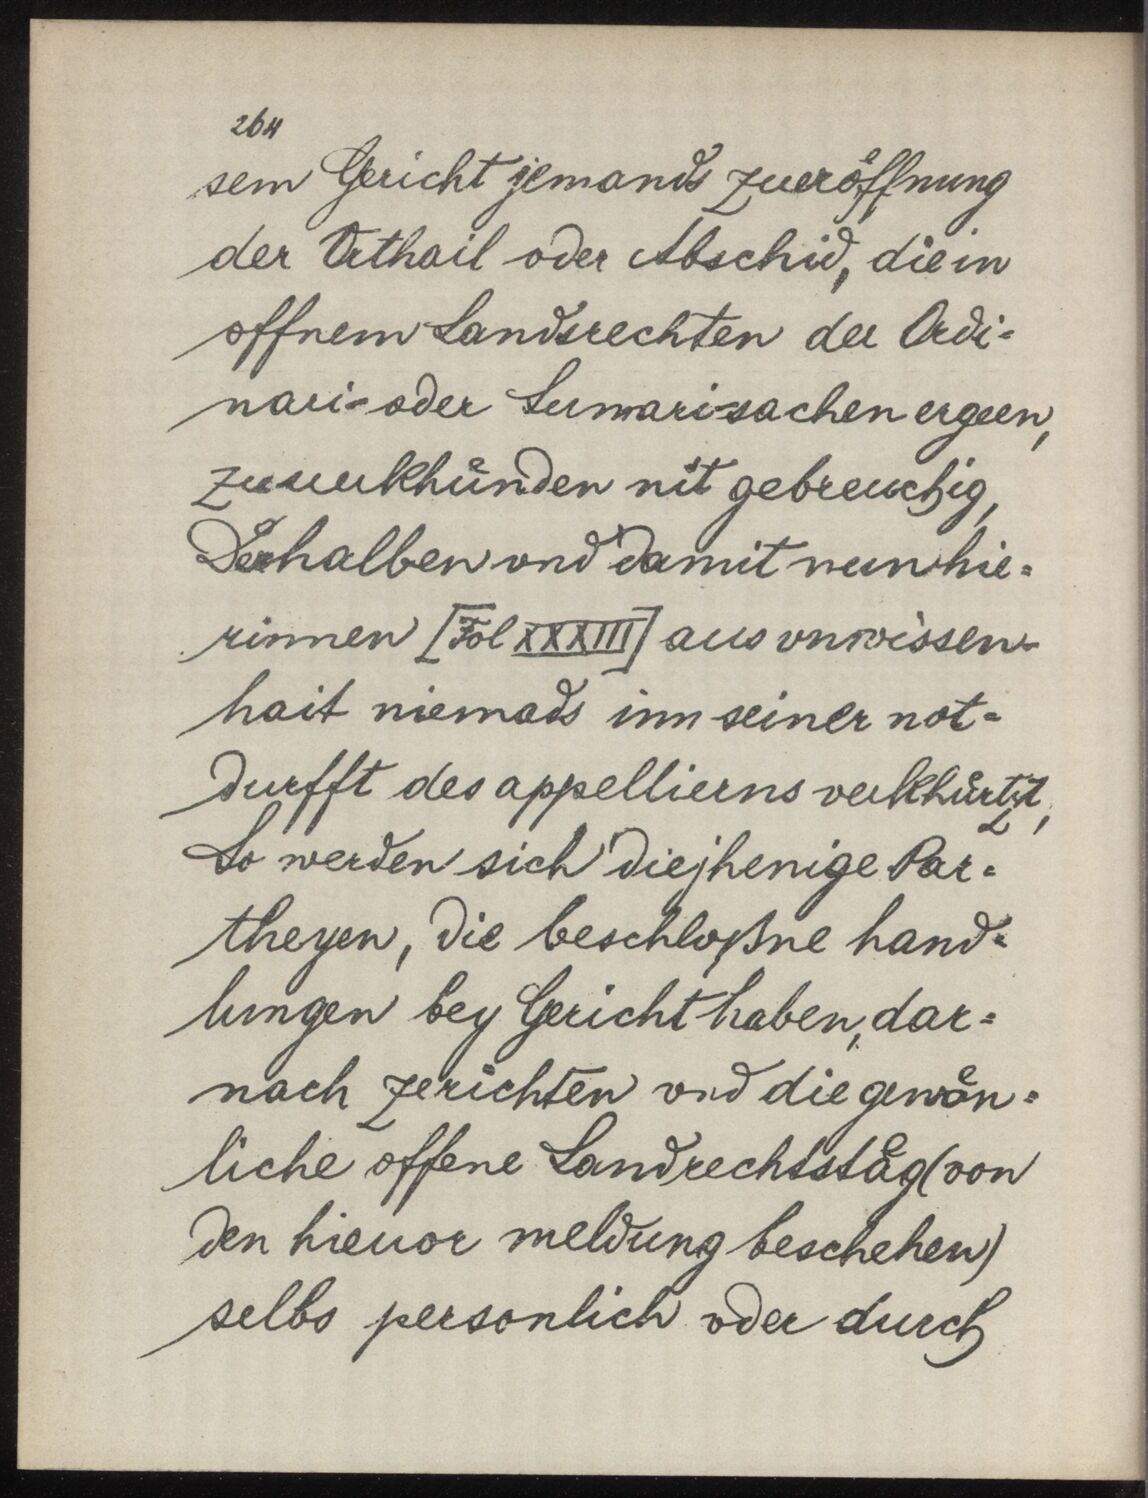 264
sem Gericht jemands zueröffnung
der Vrthail oder Abschid, die in
offnem Landsrechten der Ordi=
nari= oder Sumarisachen ergeen,
zuuerkhünden nit gebreuchig,
Derhalben vnd damit nun hie=
rinnen [Fol XXXIII] aus vnwissen=
hait niemads inn seiner not=
durfft des appellierns verkhürtzt,
So werden sich diejhenige Par=
theyen, die beschloßne hand=
lungen bey Gericht haben, dar=
nach zerichten vnd die gewön=
liche offene Landrechtstäg (von
den hieuor meldung beschehen)
selbs personlich oder durch